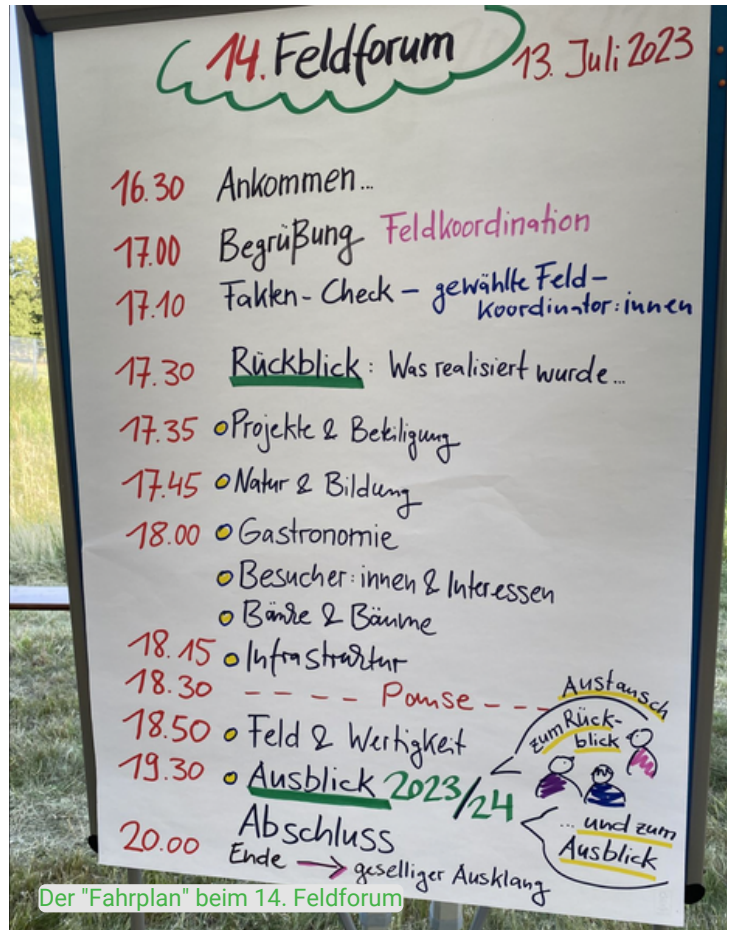 14. Feldforum
13. Juli 2023
16.30 Ankommen...
17.00 Begrüßung Feldkoordination
17.10 Fakten-Check – gewählte Feld-
Koordinator:innen
17.30 Rückblick: Was realisiert wurde...
17.35 Projekte & Beteiligung
17.45 Natur & Bildung
18.00 Gastronomie
Besucher:innen & Interessen
Bänke & Bäume
18.15 Infrastruktur
18.30 ---- Pause ---
18.50 Feld & Wertigkeit
19.30 Ausblick 2023/24
20.00 Abschluss
Ende → geselliger Ausklang
Austausch
zum Rück-
blick
... und zum
Ausblick
Der "Fahrplan" beim 14. Feldforum